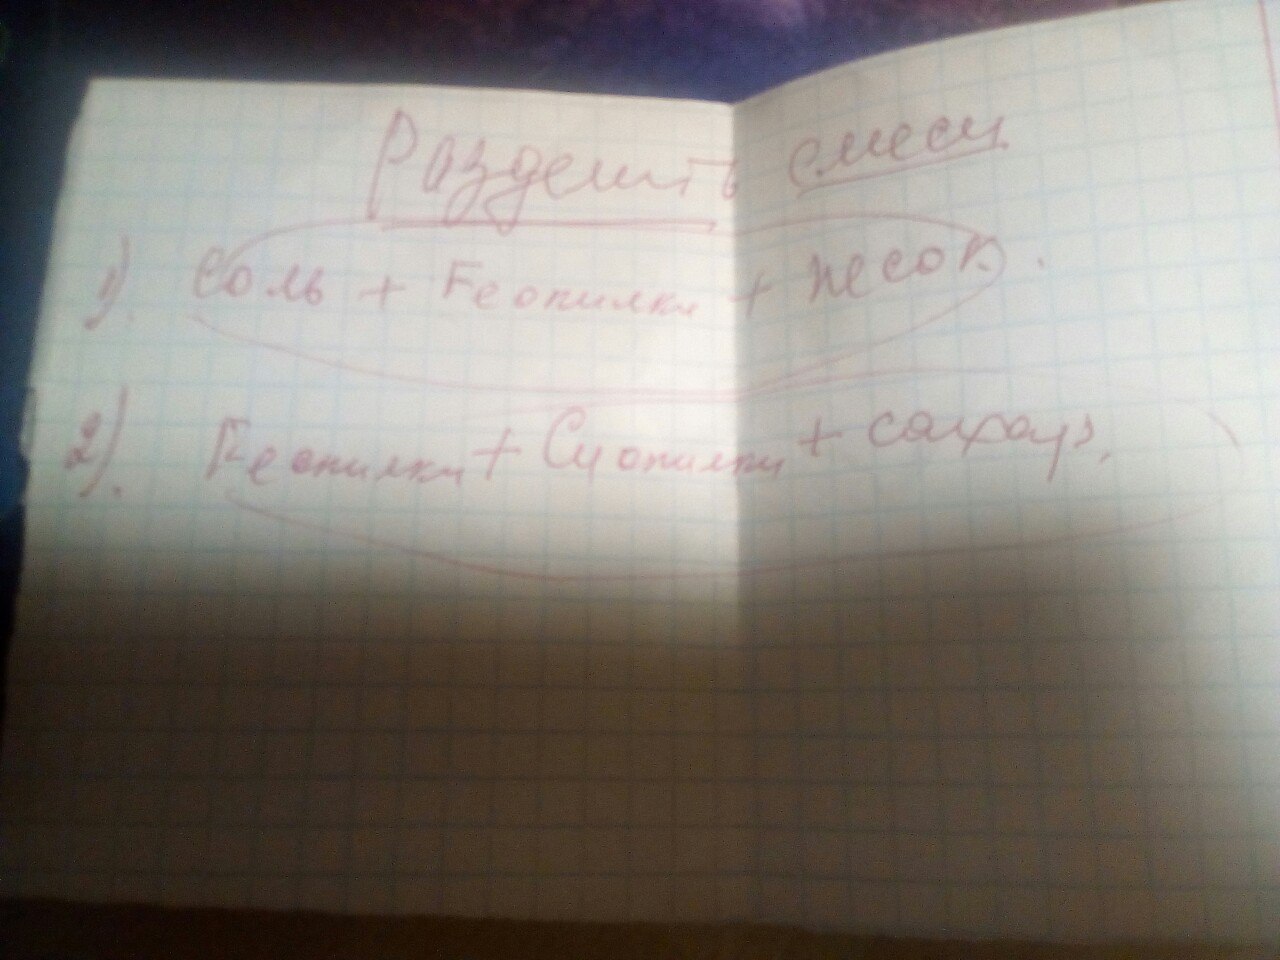 Разделить смеси
1). Соль + Fe опилки + песок.
2). Fe опилки + Cu опилки + сахар.